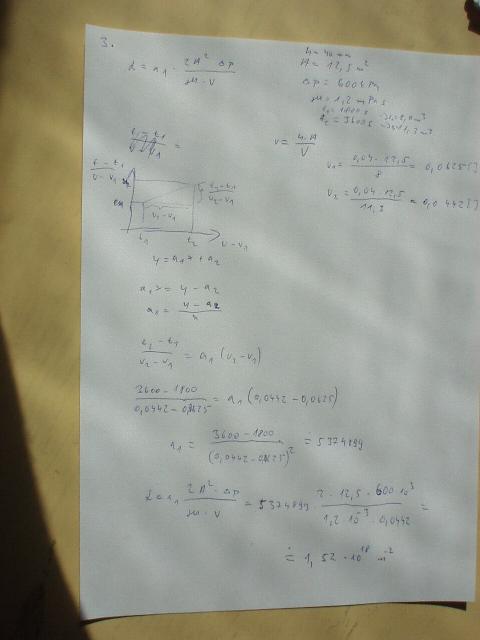 3.
h = 40 mm
A = 12,5 m²
α = a₁ · 2A² ΔP / μ · v
ΔP = 600 kPa
μ = 1,2 mPa s
t₁ = 1800 s
t₂ = 3600 s
v = h·A / V
v₁ = 0,04 · 12,5 / 8 = 0,0625 []
v₂ = 0,04 · 12,5 / 11,3 = 0,0442 []
t - t₁ / v - v₁
t₂ - t₁ / v₂ - v₁
v₂ - v₁
t₁ t₂ v - v₁
y = a₁x + a₂
a₁x = y - a₂
a₁ = y - a₂ / x
t₂ - t₁ / v₂ - v₁ = a₁ (v₂ - v₁)
3600 - 1800 / 0,0442 - 0,0625 = a₁ (0,0442 - 0,0625)
a₁ = 3600 - 1800 / (0,0442 - 0,0625)² ≐ 5374899
α = a₁ 2A² · ΔP / μ · v = 5374899 · 2 · 12,5 · 600·10³ / 1,2 · 10⁻³ · 0,0442 =
≐ 1,52 · 10¹⁸ m⁻²